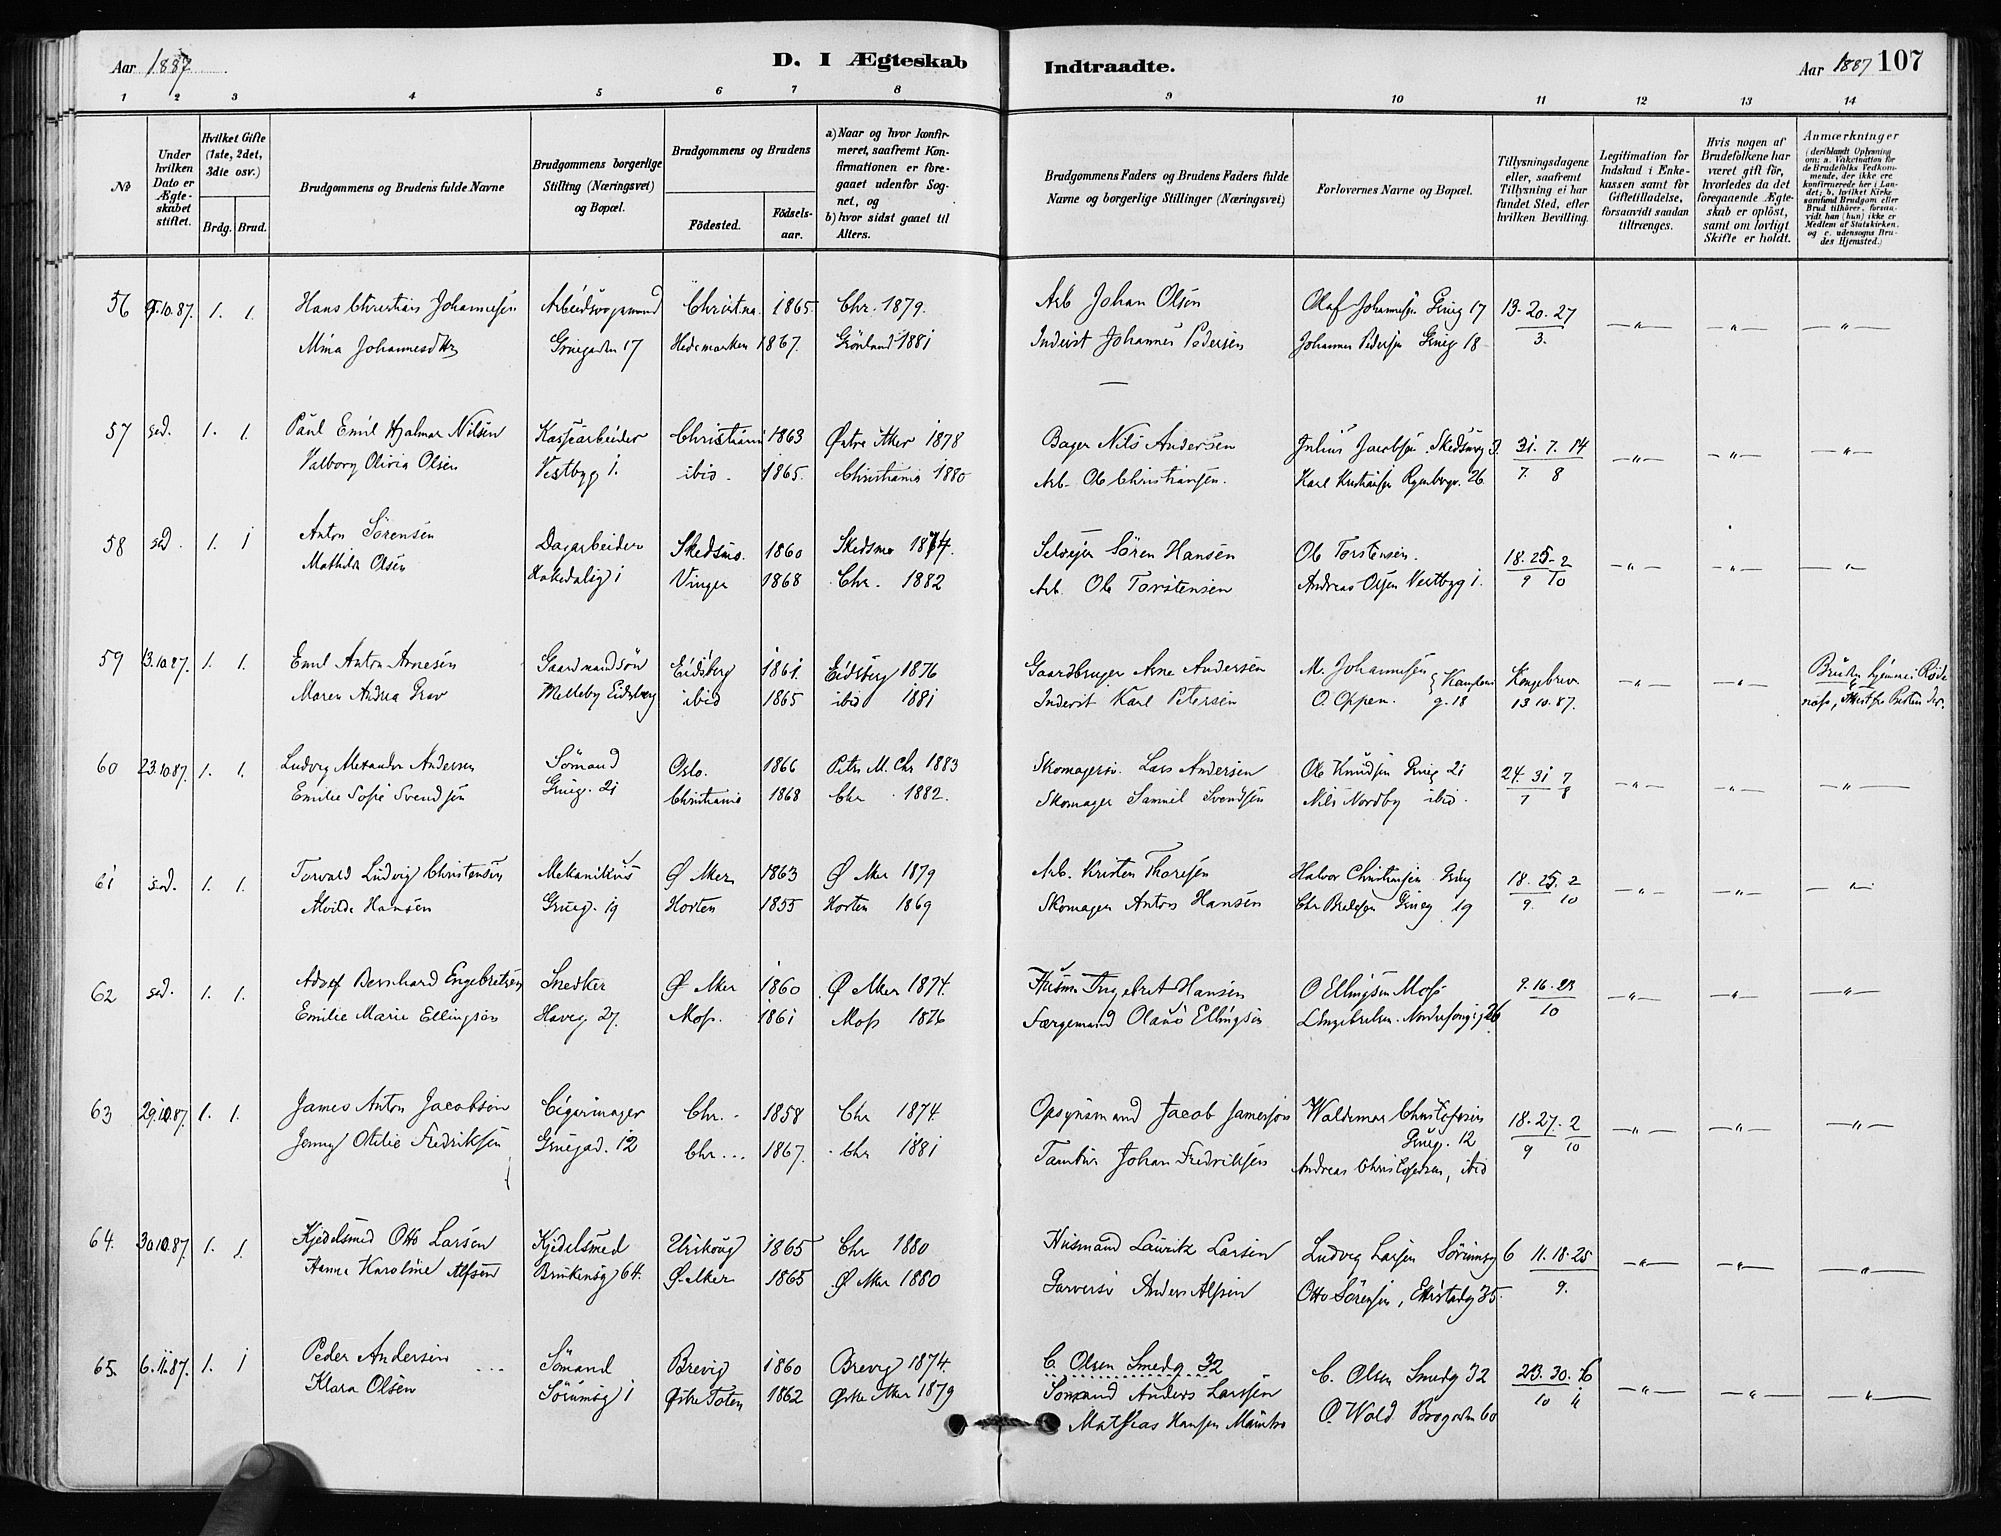 Aar 1887
D. I Ægteskab Indtraadte.
Aar 1887 107
1 2 3 4 5 6 7 8 9 10 11 12 13 14
No
Under hvilken Dato er Ægteskabet stiftet.
Hvilket Gifte (1ste, 2det, 3die osv.)
Brdg. Brud.
Brudgommens og Brudens fulde Navne
Brudgommens borgerlige Stilling (Næringsvei) og Bopæl.
Brudgommens og Brudens
Födested.
Födsels-aar.
a) Naar og hvor konfirmeret, saafremt Konfirmationen er foregaaet udenfor Sognet, og
b) hvor sidst gaaet til Alters.
Brudgommens Faders og Brudens Faders fulde Navne og borgerlige Stillinger (Næringsvei)
Forlovernes Navne og Bopæl.
Tillysningsdagene eller, saafremt Tillysning ei har fundet Sted, efter hvilken Bevilling.
Legitimation for Indskud i Enkekassen samt for Giftetilladelse, forsaavidt saadan tiltrænges.
Hvis nogen af Brudefolkene har været gift för, hvorledes da det foregaaende Ægteskab er oplöst, samt om lovligt Skifte er holdt.
Anmærkninger
(deriblandt Oplysning om: a. Vakcination för de Brudefolks Vedkommende, der ikke ere konfirmerede her i Landet; b. hvilket Kirkesamfund Brudgom eller Brud tilhörer, forsaavidt han (hun) ikke er Medlem af Statskirken, og c. udensogns Brudes Hjemsted.)
56 9.10.87. 1. 1. Hans Christian Johannesen Christ.na. 1865. Chr. 1879. Arb Johan Olsen Olaf Johannesen Grueg 17 13. 20. 27
Mina Johannesdtr Gruegaden 17 Hedemarken 1867. Grönland 1881 Inderst Johannes Pedersen Johannes Pedersen Grueg 18 3.
57 sed. 1. 1. Paul Emil Hjalmar Nilsen Christiania 1863 Östre Aker 1878 Bager Nils Andersen Julius Jacobsen Skedsmog 3. 31. 7. 14
Valborg Olivia Olsen Vestbyg 1. ibid. 1865. Christiania 1880 Arb. Ole Christiansen. Karl Kristiansen 26 7. 8
58 sed. 1. 1 Anton Sörensen Dagarbeider Skedsmo. 1860 Skedsmo 1874. Selveier Sören Hansen Ole Torstensen. 18. 25. 2
Mathilde Olsen Hakedalsg 1 Vinger 1868 Chr. 1882 Arb. Ole Torstensen Andreas Olsen Vestbyg 1. 9 10
59 13.10.87. 1. 1. Emil Anton Arnesen Gaardmandsön Eidsberg 1861. Eidsberg 1876 Gaardbruger Arne Andersen M. Johannesen Kongebrev
Maren Andrea Grav Melleby Eidsberg ibid 1865 ibid 1881 Inderst Karl Petersen O. Oppen. g. 18 13 10. 87.
60 23.10.87. 1. 1. Ludvig Alexander Andersen Sömand Oslo. 1866 Petri M. Chr 1883 Skomagersv. Lars Andersen Ole Knudsen Grueg 21 24. 31 7
Emilie Sofie Svendsen Grueg. 21 Christiania 1868 Chr. 1882. Skomager Samuel Svendsen Nils Nordby ibid. 7 8
61 sed. 1. 1. Torvald Ludvig Christensen Mekanikus Ø Aker 1863 Ø Aker 1879 Arb. Kristen Thoresen Halvor Christiansen Grueg 18. 25. 2
Alvilde Hansen Grueg. 19 Horten 1855 Horten 1869 Skomager Anton Hansen Chr Bredesen Grueg 19 9. 10
62 sed. 1. 1. Adolf Bernhard Engebretsen Snedker Ø Aker 1860 Ø Aker 1874. Husm Ingebret Hansen O Ellingsen Moss 9. 16. 23
Emilie Marie Ellingsen Haveg 27. Moss. 1861 Moss 1876 Færgemand Olaus Ellingsen 10
63 29.10.87. 1. 1. James Anton Jacobson Cigarmager Chr. 1858 Chr 1874. Opsynsmand Jacob Jameson Waldemar Christofersen 18. 27. 2
Grueg. 12
Jenny Otilie Fredriksen Gruegad. 12 Chr... 1867. Chr 1881 Tambur Johan Fredriksen Andreas Christofersen, ibid 9 10
64. 30 10.87. 1. 1. Kjedelsmed Otto Larsen Kjedelsmed Urskoug 1865 Chr 1880 Husmand Lauritz Larsen Ludvig Larsen Sörumsg 6 11. 18. 25
Hanna Karoline Alfsen 64. Ø. Aker 1865 Ø Aker 1880 Garversv Anders Alfsen Otto Sörensen, 35. 9.
65. 6.11.87. 1. 1 Peder Andersen Sömand Brevig 1860 Brevig 1874. C. Olsen Smedg 32 C. Olsen Smedg 32 23. 30. 6
Klara Olsen Sörumsg 1 Östre Toten 1862 Östre Aker 1879 Sömand Anders Larssen O. Wold Brogaden 60 10 11
Mathias Hansen